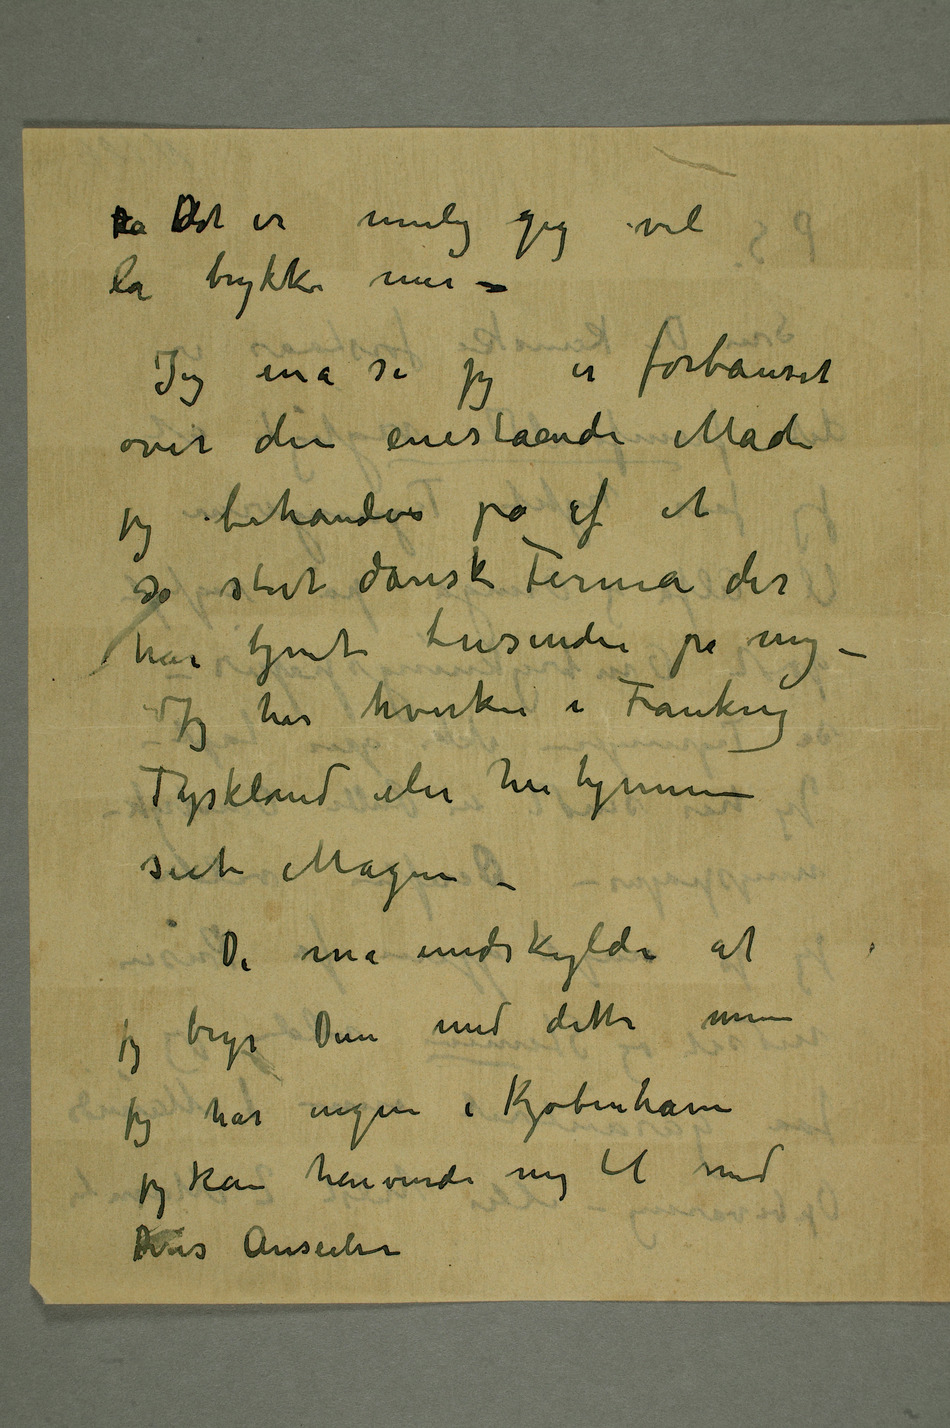 Da Det er mulig jeg vil
la trykke mer –
Jeg må si jeg er forbauset
over den enestående Måde
jeg behandles på af et
så stort dansk Firma der
har tjent tusinder på mig –
Jeg har hverken i Frankrig
Tyskland eller her hjemme
seet Magen –
De må undskylde at
jeg bryr Dem med dette men
jeg har ingen i Kjøbenhavn
jeg kan henvende mig til med
Deres Anseelse